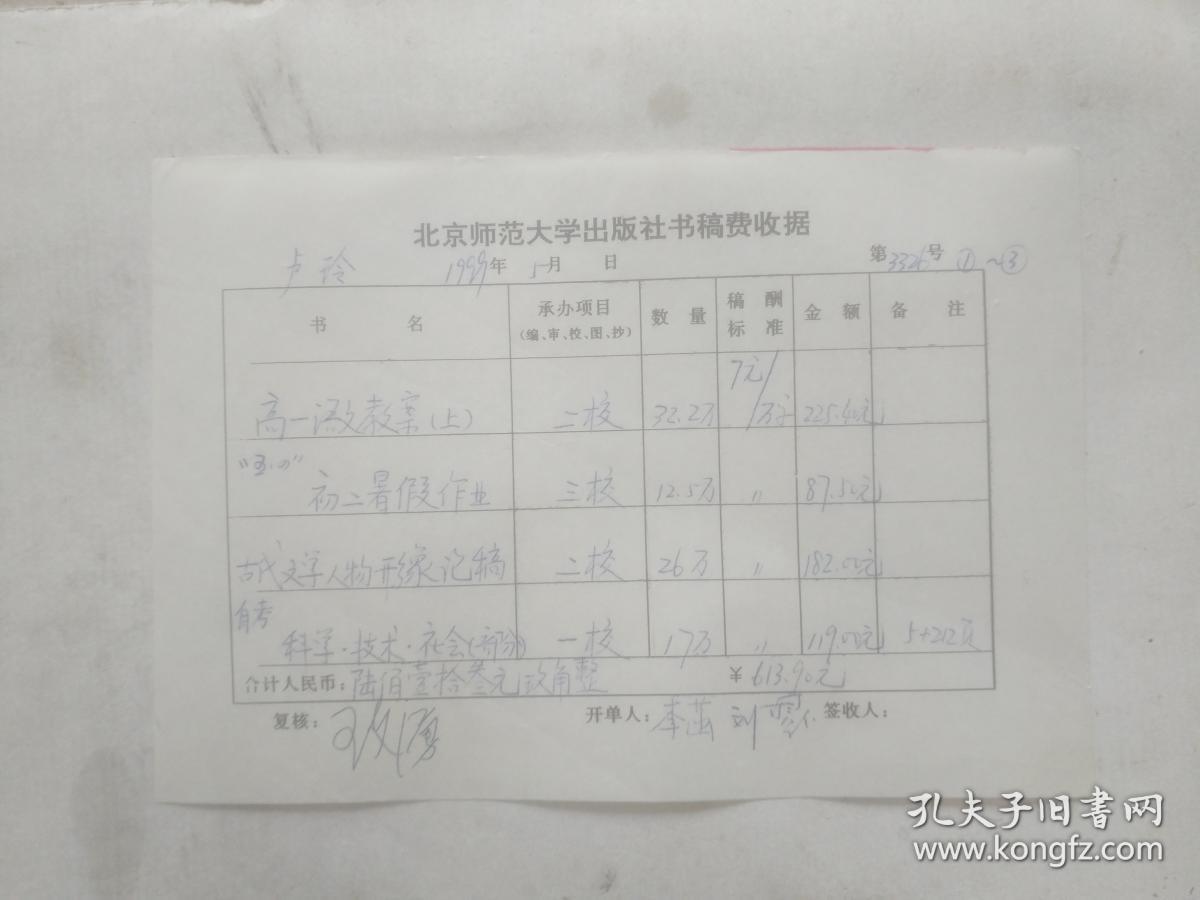 北京师范大学出版社书稿费收据
卢玲 1999年 5月 日 第3326号 ①~③
书 名 承办项目 (编、审、校、图、抄) 数 量 稿 酬 标 准 金 额 备 注
高一语文教案(上) 二校 32.2万 7元/万字 225.40元
"五·四"
初二暑假作业 三校 12.5万 〃 87.50元
古代文学人物形象论稿 二校 26万 〃 182.00元
自考
科学·技术·社会(部分) 一校 17万 〃 119.00元 5+212页
合计人民币:陆佰壹拾叁元玖角整 ¥613.90元
复核: 开单人:李茁 刘 签收人:
孔夫子旧书网
www.kongfz.com